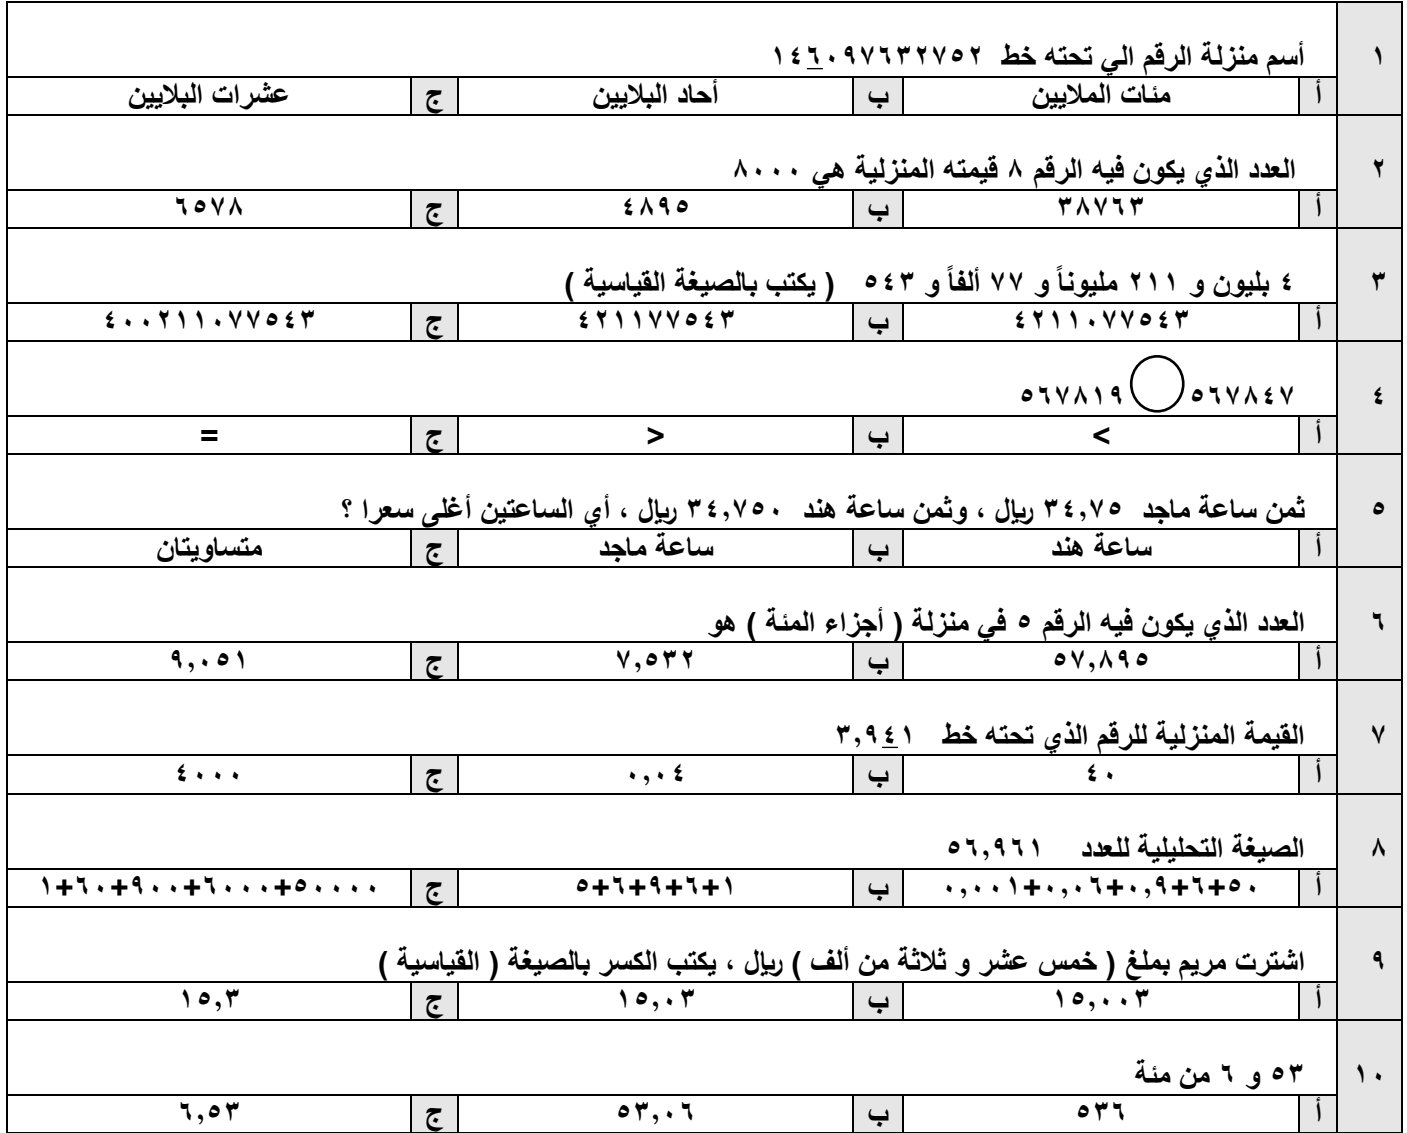 ١ أسم منزلة الرقم الي تحته خط ١٤٦٠٩٧٦٣٢٧٥٢
أ مئات الملايين ب أحاد البلايين ج عشرات البلايين
٢ العدد الذي يكون فيه الرقم ٨ قيمته المنزلية هي ٨٠٠٠
أ ٣٨٧٦٣ ب ٤٨٩٥ ج ٦٥٧٨
٣ ٤ بليون و ٢١١ مليوناً و ٧٧ ألفاً و ٥٤٣ ( يكتب بالصيغة القياسية )
أ ٤٢١١٠٧٧٥٤٣ ب ٤٢١١٧٧٥٤٣ ج ٤٠٠٢١١٠٧٧٥٤٣
٤ ٥٦٧٨٤٧ ٥٦٧٨١٩
أ < ب > ج =
٥ ثمن ساعة ماجد ٣٤,٧٥ ريال ، وثمن ساعة هند ٣٤,٧٥٠ ريال ، أي الساعتين أغلى سعرا ؟
أ ساعة هند ب ساعة ماجد ج متساويتان
٦ العدد الذي يكون فيه الرقم ٥ في منزلة ( أجزاء المئة ) هو
أ ٥٧,٨٩٥ ب ٧,٥٣٢ ج ٩,٠٥١
٧ القيمة المنزلية للرقم الذي تحته خط ٣,٩٤١
أ ٤٠ ب ٠,٠٤ ج ٤٠٠٠
٨ الصيغة التحليلية للعدد ٥٦,٩٦١
أ ٥٠+٦+٠,٩+٠,٠٦+٠,٠٠١ ب ١+٦+٩+٦+٥ ج ٥٠٠٠٠+٦٠٠٠+٩٠٠+٦٠+١
٩ اشترت مريم بملغ ( خمس عشر و ثلاثة من ألف ) ريال ، يكتب الكسر بالصيغة ( القياسية )
أ ١٥,٠٠٣ ب ١٥,٠٣ ج ١٥,٣
١٠ ٥٣ و ٦ من مئة
أ ٥٣٦ ب ٥٣,٠٦ ج ٦,٥٣